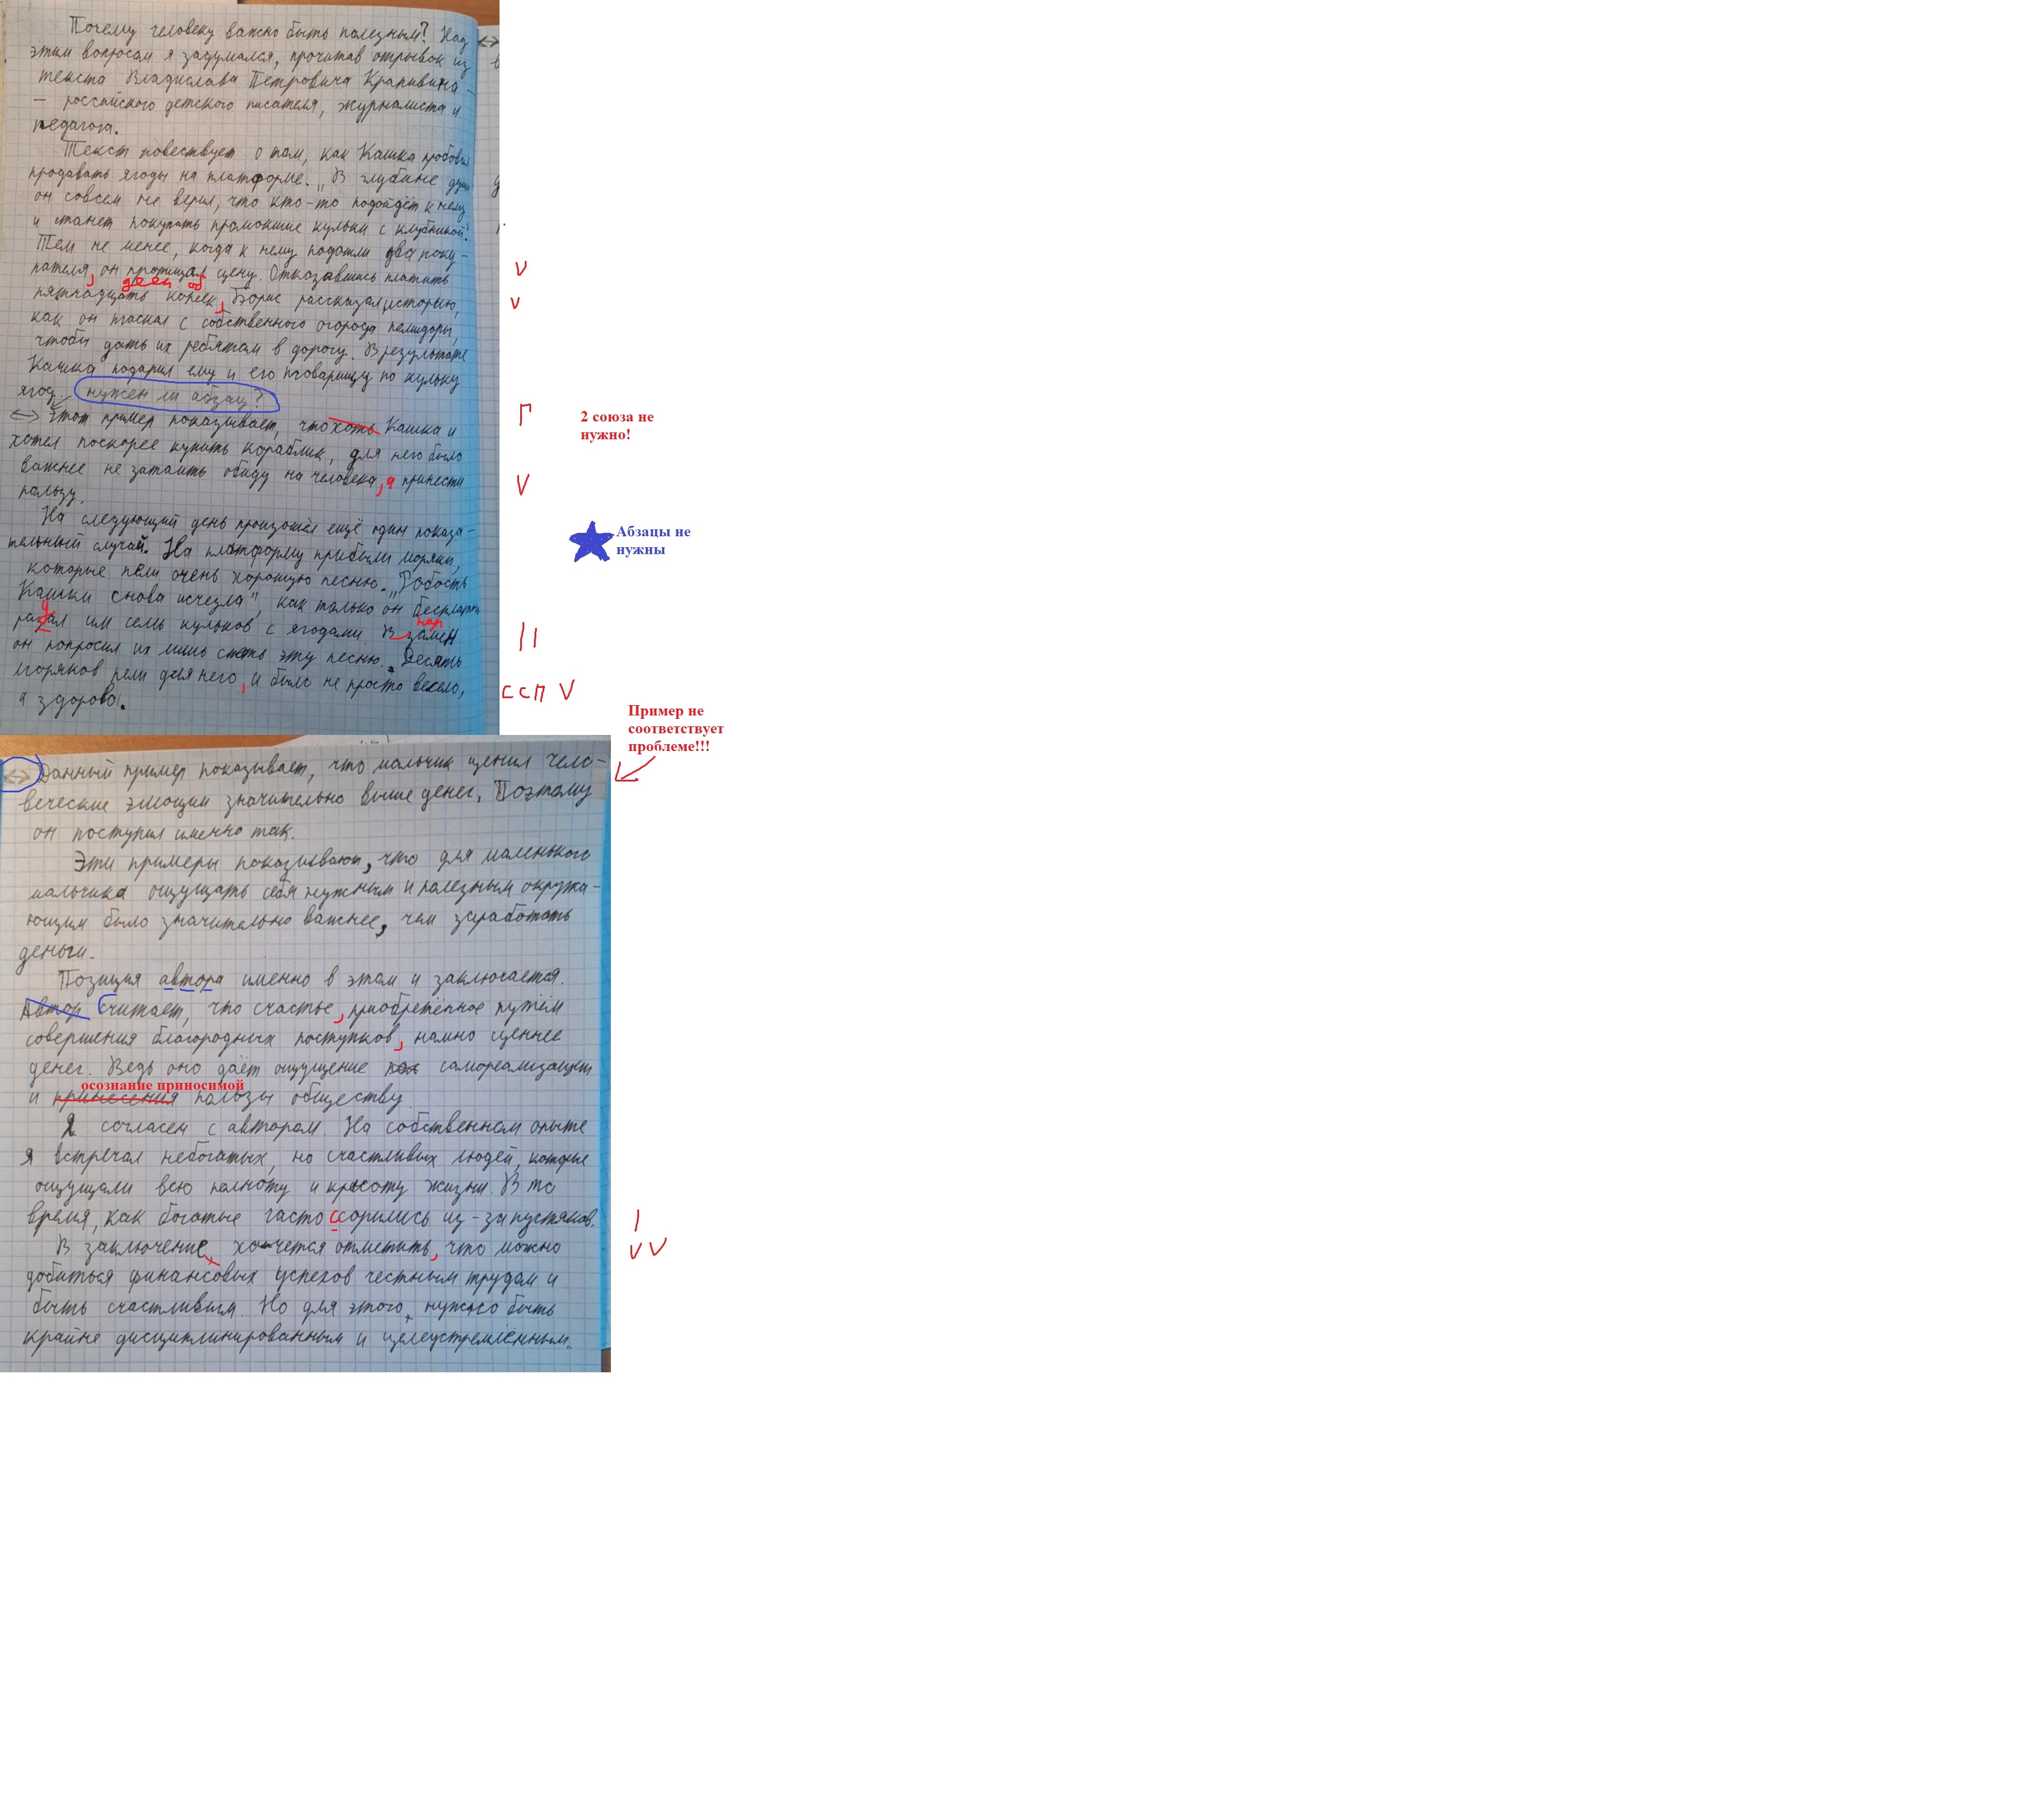 Почему человеку важно быть полезным? Над
этим вопросом я задумался, прочитав отрывок из
текста Владислава Петровича Крапивина -
- российского детского писателя, журналиста и
педагога.
Текст повествует о том, как Кашка пробовал
продавать ягоды на платформе. „В глубине души
он совсем не верил, что кто-то подойдёт к нему
и станет покупать промокшие кульки с клубникой."
Тем не менее, когда к нему подошли два поку-
пателя, он цену. Отказавшись платить
пятнадцать копеек, Борис рассказал историю,
как он таскал с собственного огорода помидоры,
чтобы дать их ребятам в дорогу. В результате
Кашка подарил ему и его товарищу по кульку
ягод. нужен ли абзац?
Этот пример показывает, что хоть Кашка и
хотел поскорее купить кораблик, для него было
важнее не затаить обиду на человека, а принести
пользу.
2 союза не
нужно!
На следующий день произошёл ещё один показа-
тельный случай. На платформу прибыли моряки,
которые пели очень хорошую песню. „Робость
Кашки снова исчезла", как только он бесплатно
им семь кульков с ягодами. В замен
он попросил их лишь спеть эту песню. Десять
моряков пели для него, и было не просто весело,
а здорово.
Абзацы не
нужны
ССП V
Пример не
соответствует
проблеме!!!
Данный пример показывает, что мальчик ценил чело-
веческие эмоции значительно выше денег. Поэтому
он поступил именно так.
Эти примеры показывают, что для маленького
мальчика ощущать себя нужным и полезным окружа-
ющим было значительно важнее, чем заработать
деньги.
Позиция автора именно в этом и заключается.
Автор Считает, что счастье, приобретённое путём
совершения благородных поступков, намно ценнее
денег. Ведь оно даёт ощущение самореализации
осознание приносимой
и принесения пользы обществу.
Я согласен с автором. На собственном опыте
я встречал небогатых, но счастливых людей, которые
ощущали всю полноту и красоту жизни. В то
время, как богатые часто ссорились из-за пустяков.
В заключение, хочется отметить, что можно
добиться финансовых успехов честным трудом и
быть счастливым. Но для этого, нужно быть
крайне дисциплинированным и целеустремлённым.